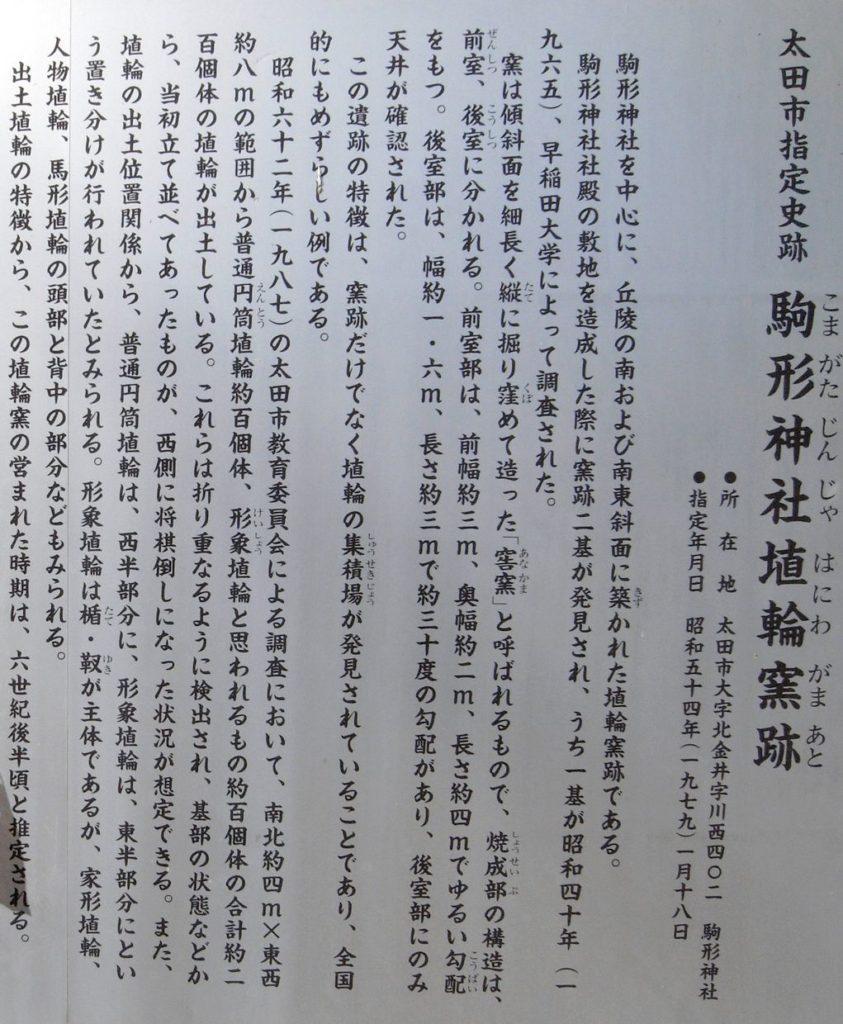 太田市指定史跡
駒形神社埴輪窯跡
こまがたじんじゃ はにわ がまあと
●所在地 太田市大字北金井字川西四〇二 駒形神社
●指定年月日 昭和五十四年(一九七九)一月十八日
駒形神社を中心に、丘陵の南および南東斜面に築かれた埴輪窯跡である。
きず
駒形神社社殿の敷地を造成した際に窯跡二基が発見され、うち一基が昭和四十年(一
九六五)、早稲田大学によって調査された。
窯は傾斜面を細長く縦に掘り窪めて造った「窖窯」と呼ばれるもので、焼成部の構造は、
たて くぼ あなかま しょうせいぶ
前室、後室に分かれる。前室部は、前幅約三m、奥幅約二m、長さ約四mでゆるい勾配
ぜんしつ こうしつ こうばい
をもつ。後室部は、幅約一・六m、長さ約三mで約三十度の勾配があり、後室部にのみ
天井が確認された。
この遺跡の特徴は、窯跡だけでなく埴輪の集積場が発見されていることであり、全国
しゅうせきじょう
的にもめずらしい例である。
昭和六十二年(一九八七)の太田市教育委員会による調査において、南北約四m×東西
約八mの範囲から普通円筒埴輪約百個体、形象埴輪と思われるもの約百個体の合計約二
えんとう けいしょう
百個体の埴輪が出土している。これらは折り重なるように検出され、基部の状態などか
ら、当初立て並べてあったものが、西側に将棋倒しになった状況が想定できる。また、
埴輪の出土位置関係から、普通円筒埴輪は、西半部分に、形象埴輪は、東半部分にとい
う置き分けが行われていたとみられる。形象埴輪は楯・靫が主体であるが、家形埴輪、
たて ゆき
人物埴輪、馬形埴輪の頭部と背中の部分などもみられる。
出土埴輪の特徴から、この埴輪窯の営まれた時期は、六世紀後半頃と推定される。